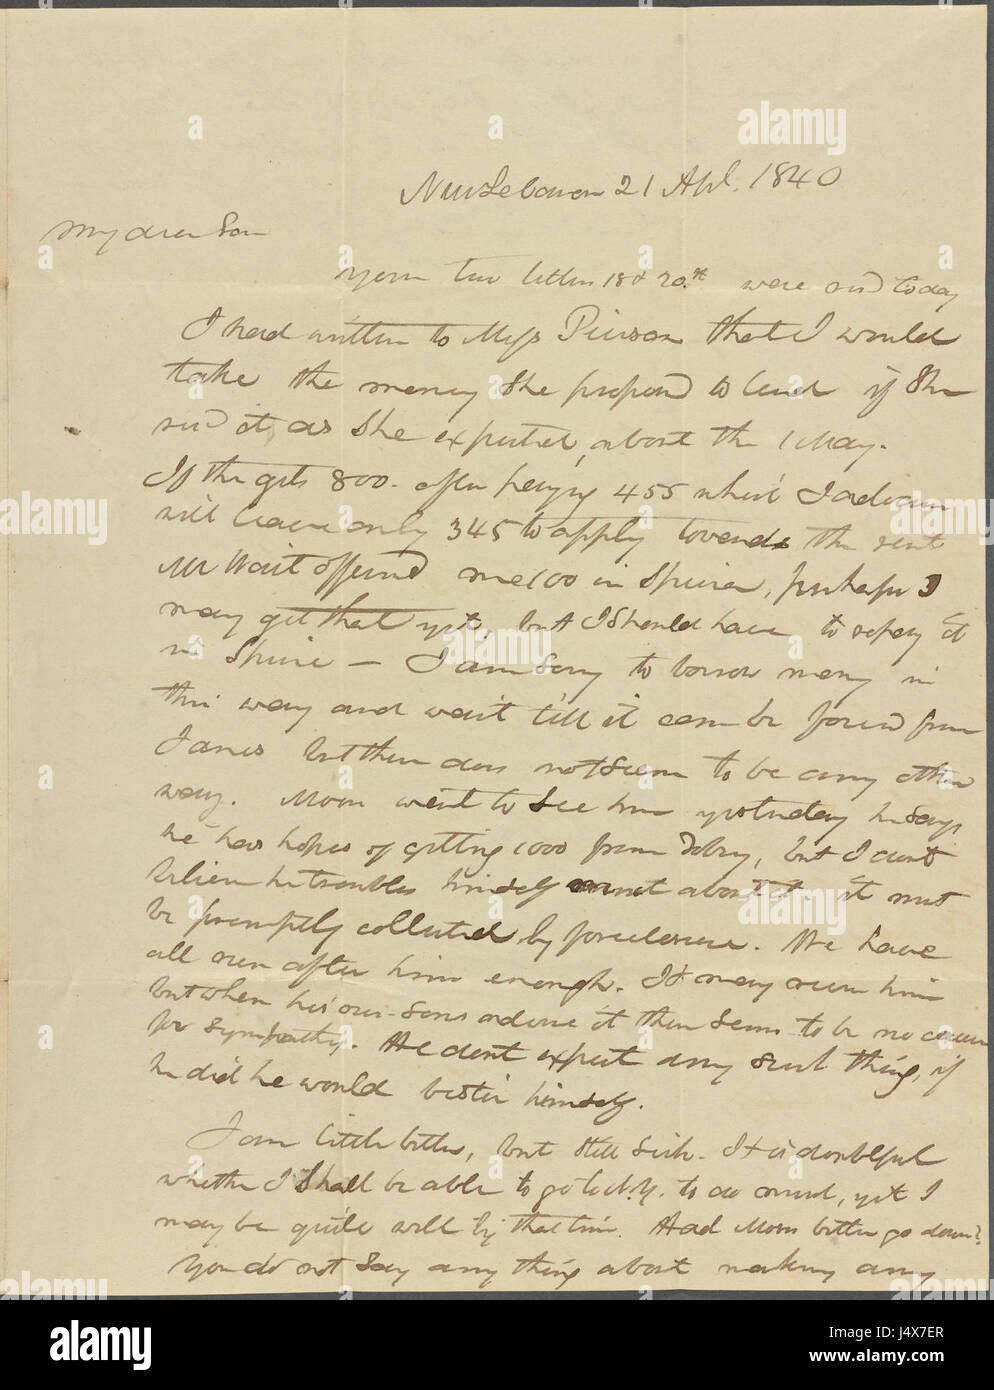 New Lebanon 21 Apl. 1840
My dear Son
Your two letters 18 & 20.th were recd today
I had written to Miss Pierson that I would
take the money she proposed to lend if she
recd it as she expected, about the 1 May.
If she gets 800. after paying 455 which I
will leave only 345 to apply towards the rent
Mr Wait offered me 100 in Specie, perhaps I
may get that yet, but I should have to repay it
in Specie — I am sorry to borrow money in
this way and wait till it can be forced from
James but there does not seem to be any other
way. Moon went to see him yesterday he says
he has hopes of getting 1000 from , but I dont
believe he troubles himself much about it. it must
be promptly collected by foreclosure. We have
all run after him enough. It may ruin him
but when his own sons advise it there seems to be no cause
for sympathy. He dont expect any such thing, if
he did he would bestir himself.
I am little better, but still sick. It is doubtful
whether I shall be able to go to N.Y. to do much, yet I
may be quite well by that time. Had Moon better go down?
You do not say any thing about making any
alamy
alamy stock photo
J4X7ER
www.alamy.com